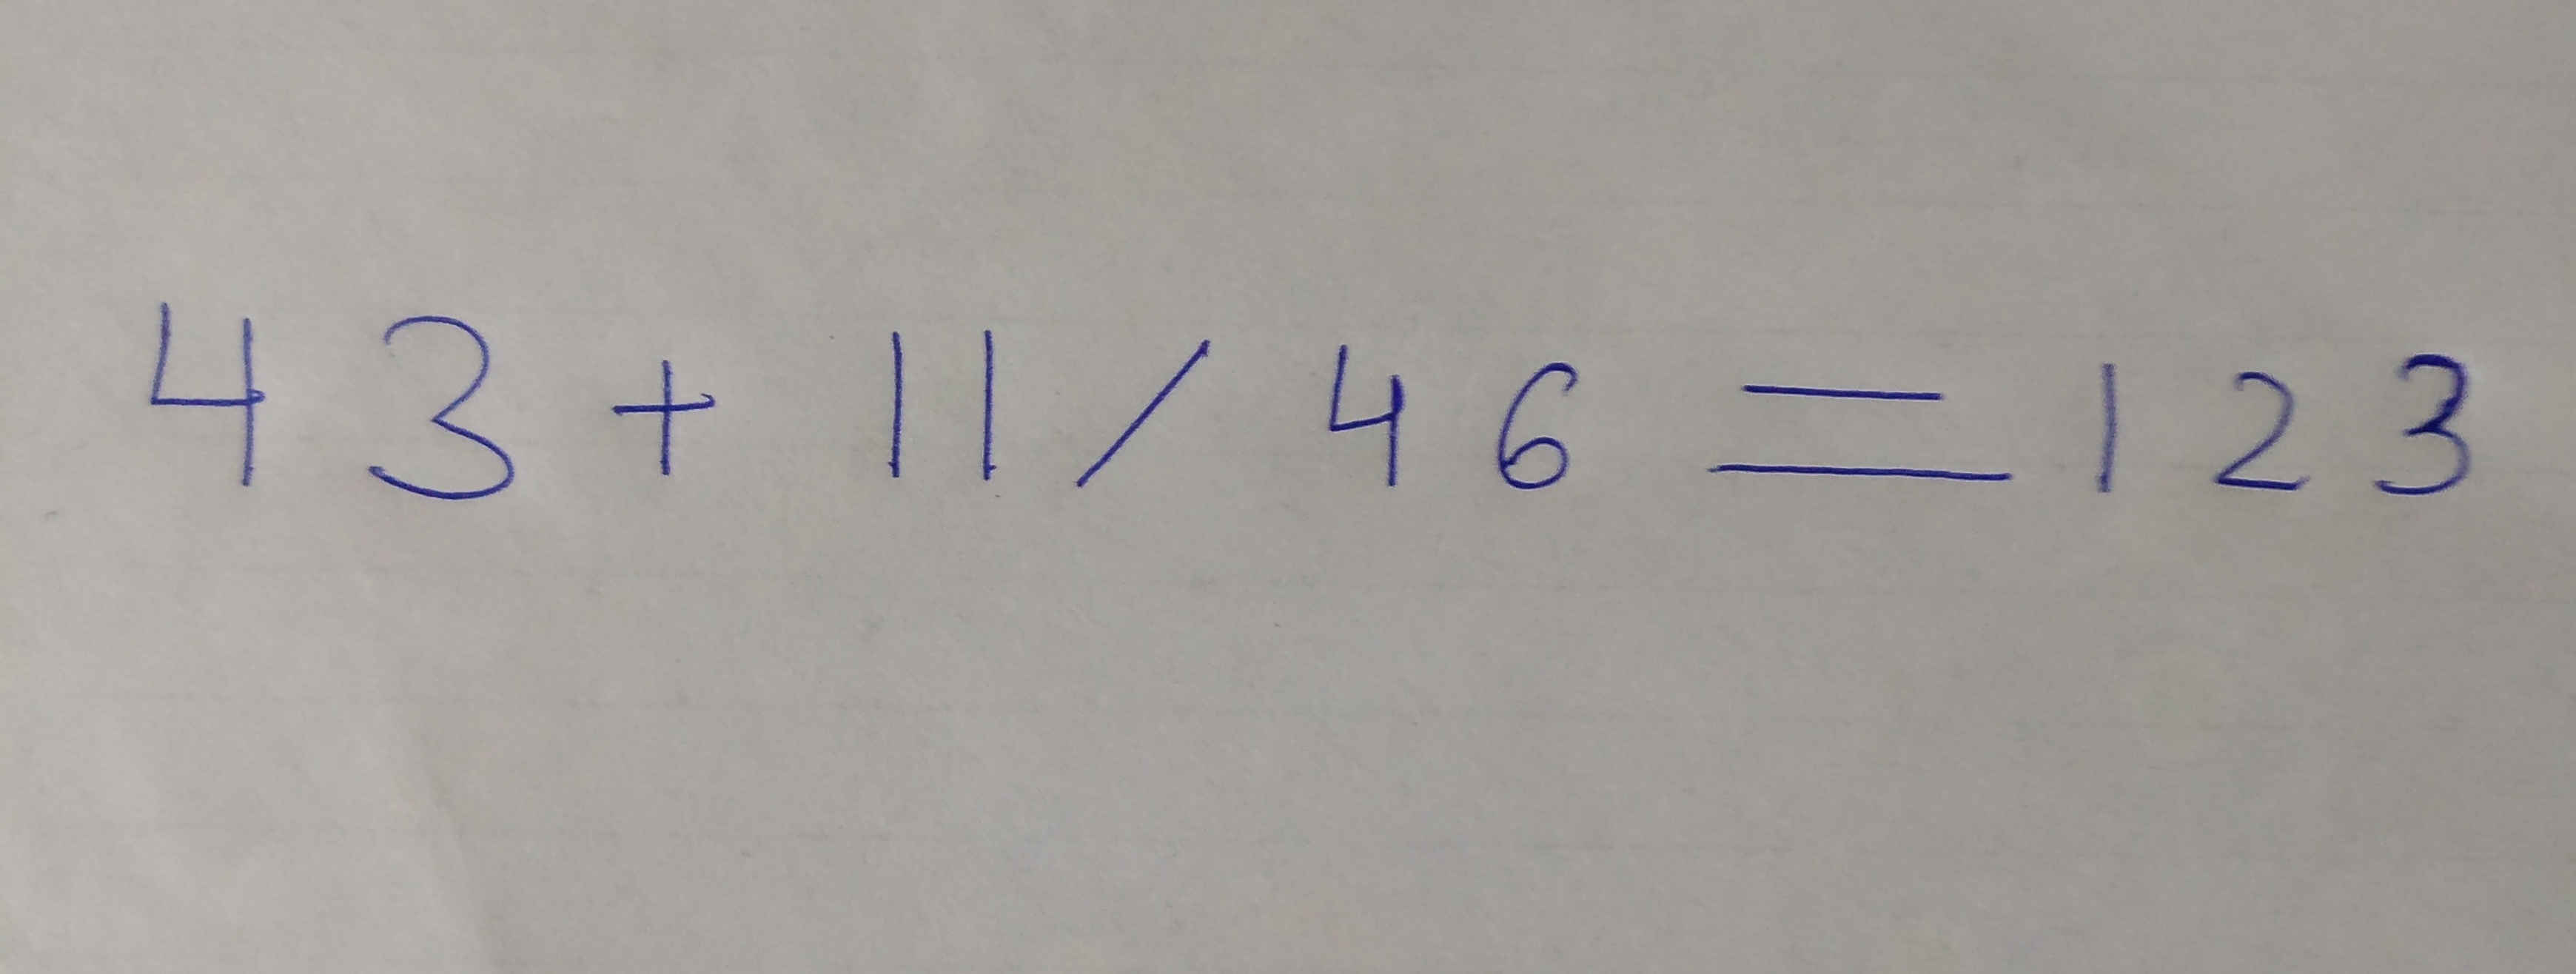 43 + 11 / 46 = 123